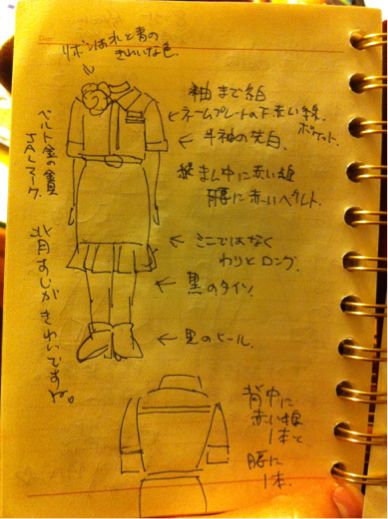 Date
リボンは赤と青の
きれいな色
袖まで紺白
←ネームプレートの下赤い線、
ポケット
←半袖の先白
真ん中に赤い線
腰に赤いベルト。
ベルト金の金具
JALマーク。
←ミニではなく
わりとロング。
←黒のタイツ
←黒のヒール。
背すじがきれいですね。
背中に
赤い線
1本と
腰に
1本。